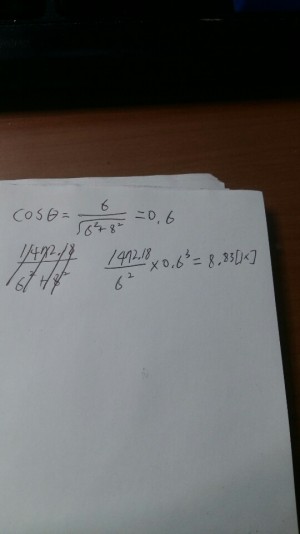 cosθ = 6 / √(6²+8²) = 0.6
1472.18 / 6²+8²
1472.18 / 6² × 0.6³ = 8.83[lx]